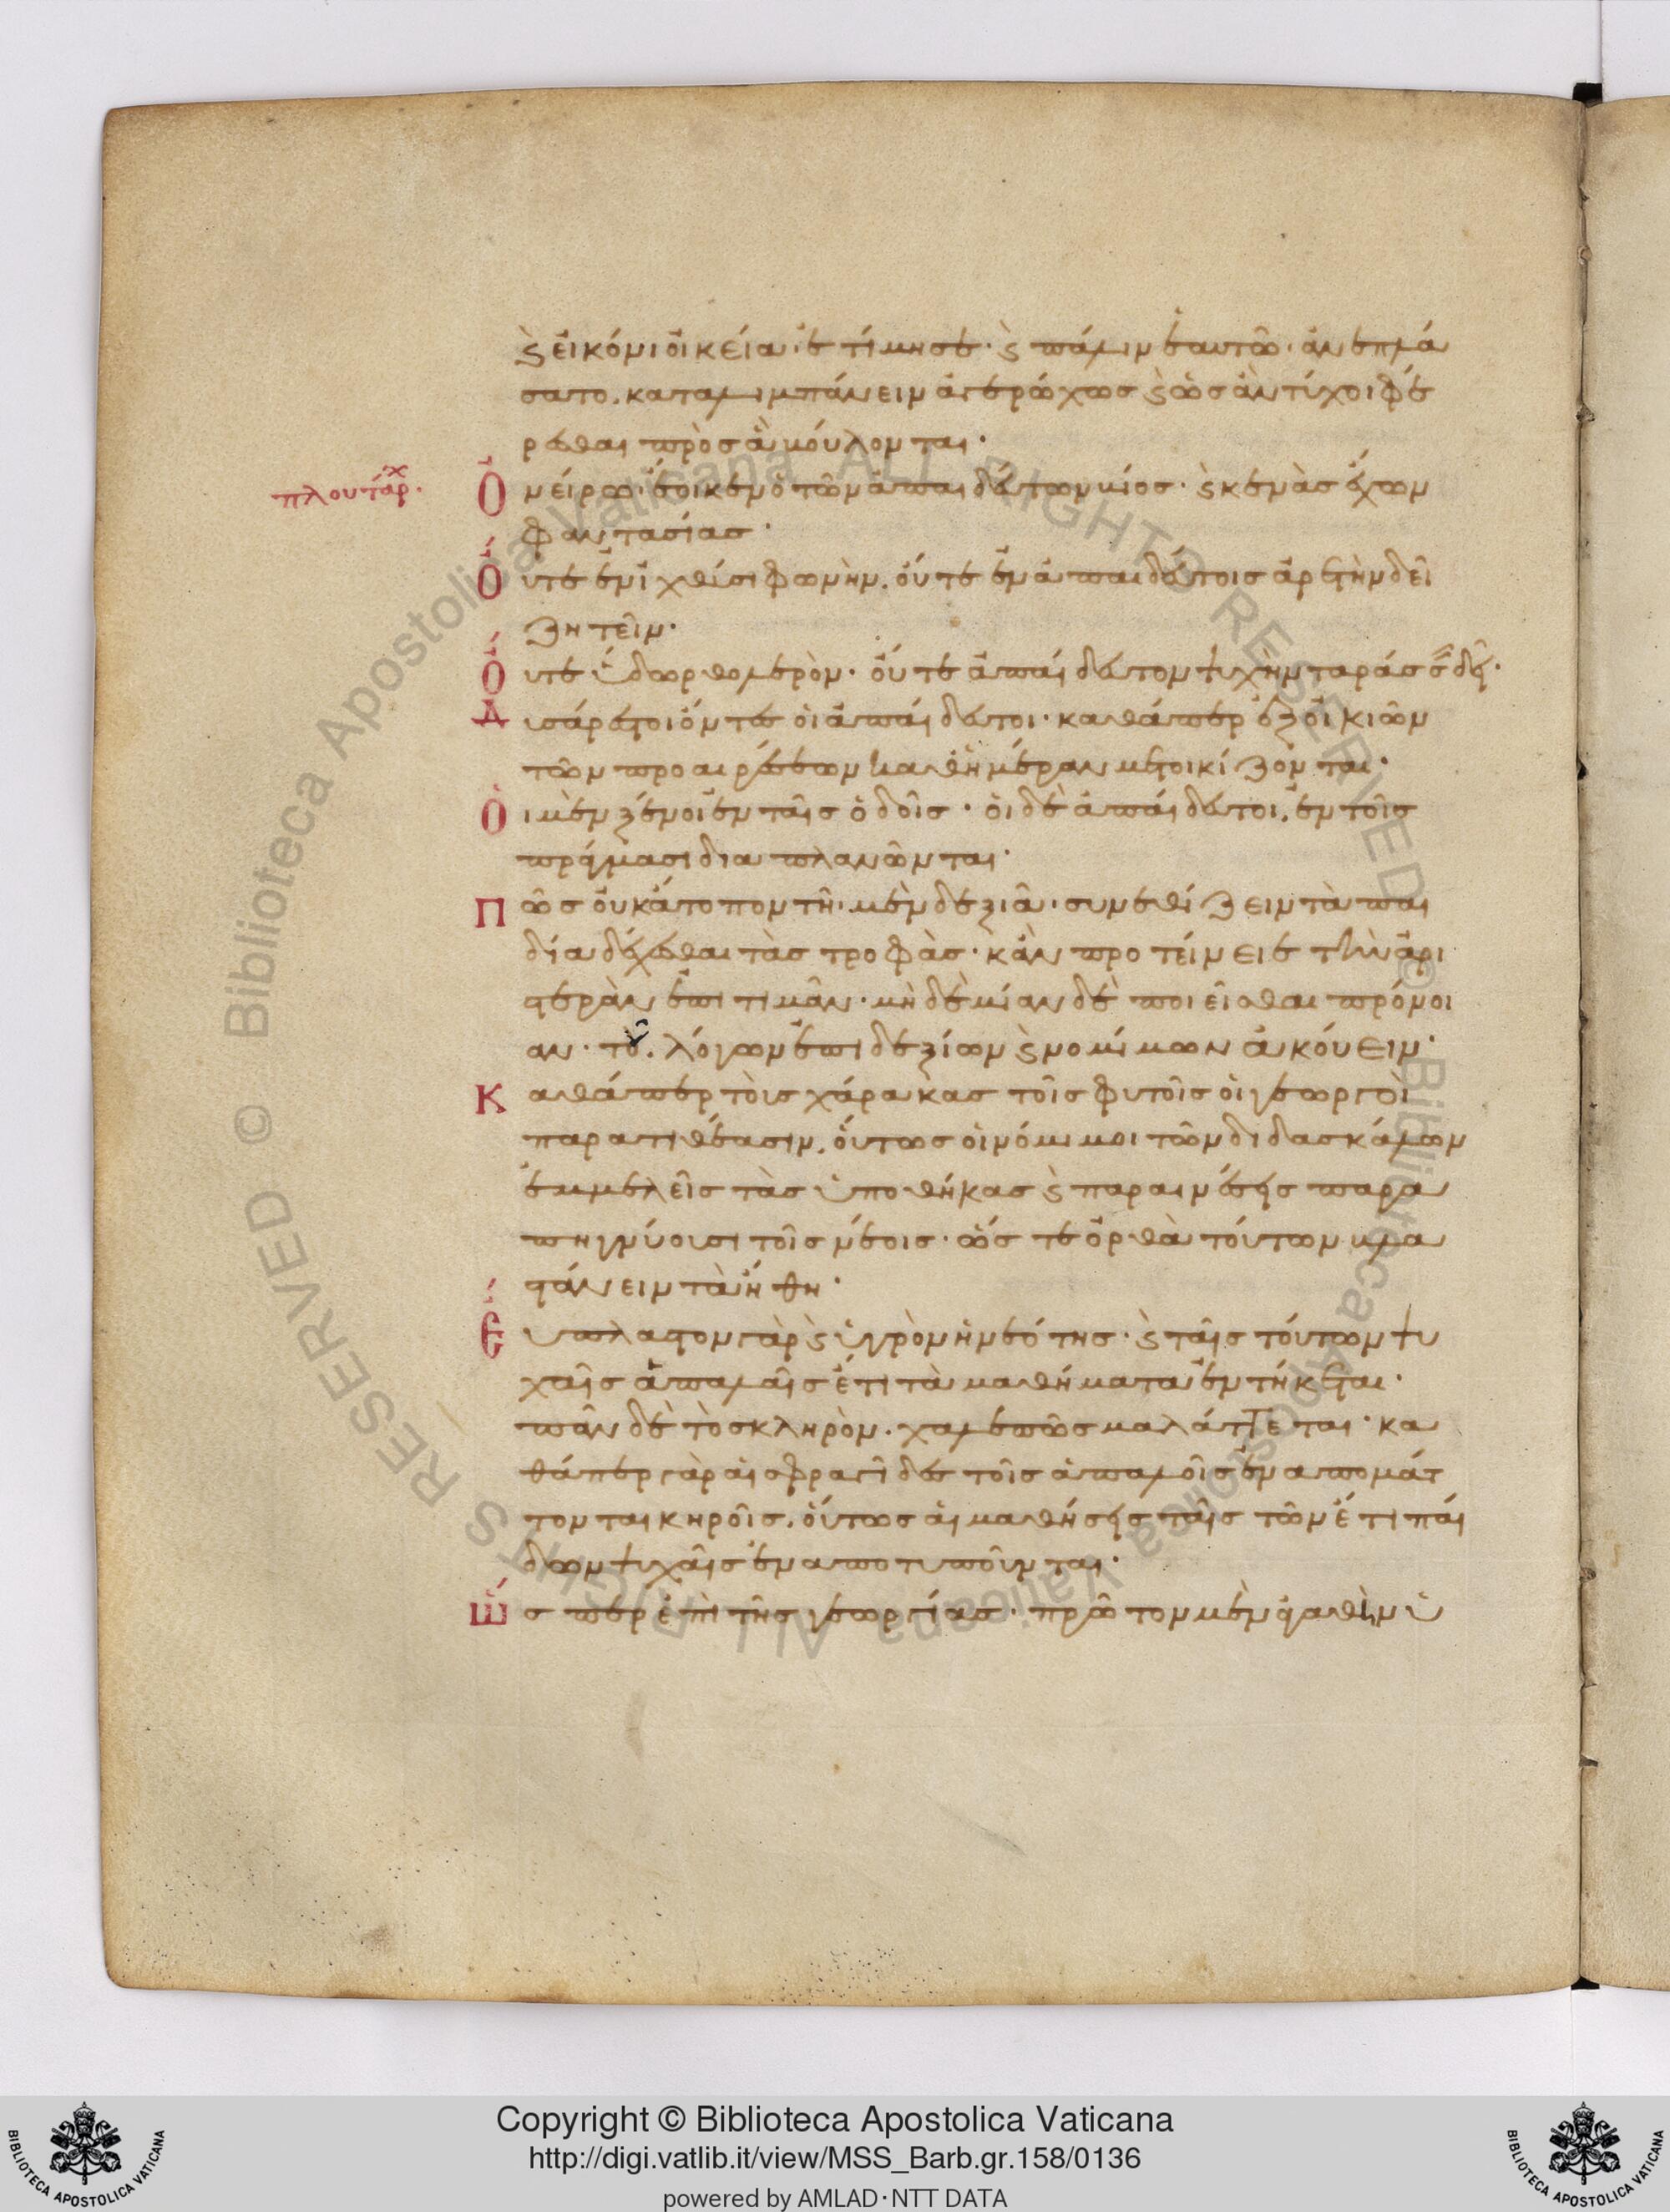 ϛ εἰκόνι οἰκεία ἐτίμησε· ϛ πάλιν ἑαυτῶ· ἀνεπλά
σατο. καταλιμπάνειν ἀτρόχως ϛ ὡς ἂν τύχοι φέ
ρεσθαι πρὸς ἃ βούλονται·
πλουτάρχ.
Ὀνείρω· ἔοικεν ὁ τῶν ἀπαιδεύτων βίος· ϛ κενὰς ἔχων
φαντασίας·
Οὔτε ἐν ἰχθύσι φωνὴν. οὔτε ἐν ἀπαιδεύτοις ἀρετὴν δεῖ
ζητεῖν·
Οὔτε ὕδωρ θολερὸν· οὔτε ἀπαίδευτον ψυχὴν ταράσσειν δεῖ·
Δισάρεστοι ὄντες οἱ ἀπαίδευτοι· καθάπερ ἐξ οἰκιῶν
τῶν προαιρέσεων καθ ἡμέραν μετοικίζονται·
Οἱ μὲν ξένοι ἐν ταῖς ὁδοῖς· οἱ δὲ ἀπαίδευτοι, ἐν τοῖς
πράγμασι διαπλανῶνται·
Πῶς οὐκ ἄτοπον τῆ· μὲν δεξιᾶ· συνεθίζειν τὰ παι
δία δέχεσθαι τὰς τροφὰς· κἂν προτείνειε τὴν ἀρι
στερὰν ἐπιτιμᾶν· μηδεμίαν δὲ ποιεῖσθαι πρόνοι
αν· τοῦ. λόγων ἐπιδεξίων ϛ νομίμων ἀκούειν·
Καθάπερ τοὺς χάρακας τοῖς φυτοῖς οἱ γεωργοὶ
παρατιθέασιν. οὕτως οἱ νόμιμοι τῶν διδασκάλων
ἐμμελεῖς τὰς ὑποθήκας ϛ παραινέσεις παρα
πηγνύουσι τοῖς νέοις· ὥστε ὀρθὰ τούτων βλα
στάνειν τὰ ἤθη·
Εὔπλαστον γὰρ ϛ ὑγρὸν ἡ νεότης· ϛ ταῖς τούτων ψυ
χαῖς ἁπαλαῖς ἔτι τὰ μαθήματα ἐντήκεται·
πᾶν δὲ τὸ σκληρὸν. χαλεπῶς μαλάττεται· κα
θάπερ γὰρ αἱ σφραγῖδες τοῖς ἁπαλοῖς ἐναπομάτ
τονται κηροῖς. οὕτως αἱ μαθήσεις ταῖς τῶν ἔτι παί
δων ψυχαῖς ἐναποτυποῦνται·
Ὥσπερ ἐπὶ τῆς γεωργίας· πρῶτον μὲν ἀγαθὴν ὑ
Copyright © Biblioteca Apostolica Vaticana
http://digi.vatlib.it/view/MSS_Barb.gr.158/0136
powered by AMLAD·NTT DATA
BIBLIOTECA APOSTOLICA VATICANA
BIBLIOTECA APOSTOLICA VATICANA
© Biblioteca Apostolica Vaticana ALL RIGHTS RESERVED
© Biblioteca Apostolica Vaticana ALL RIGHTS RESERVED